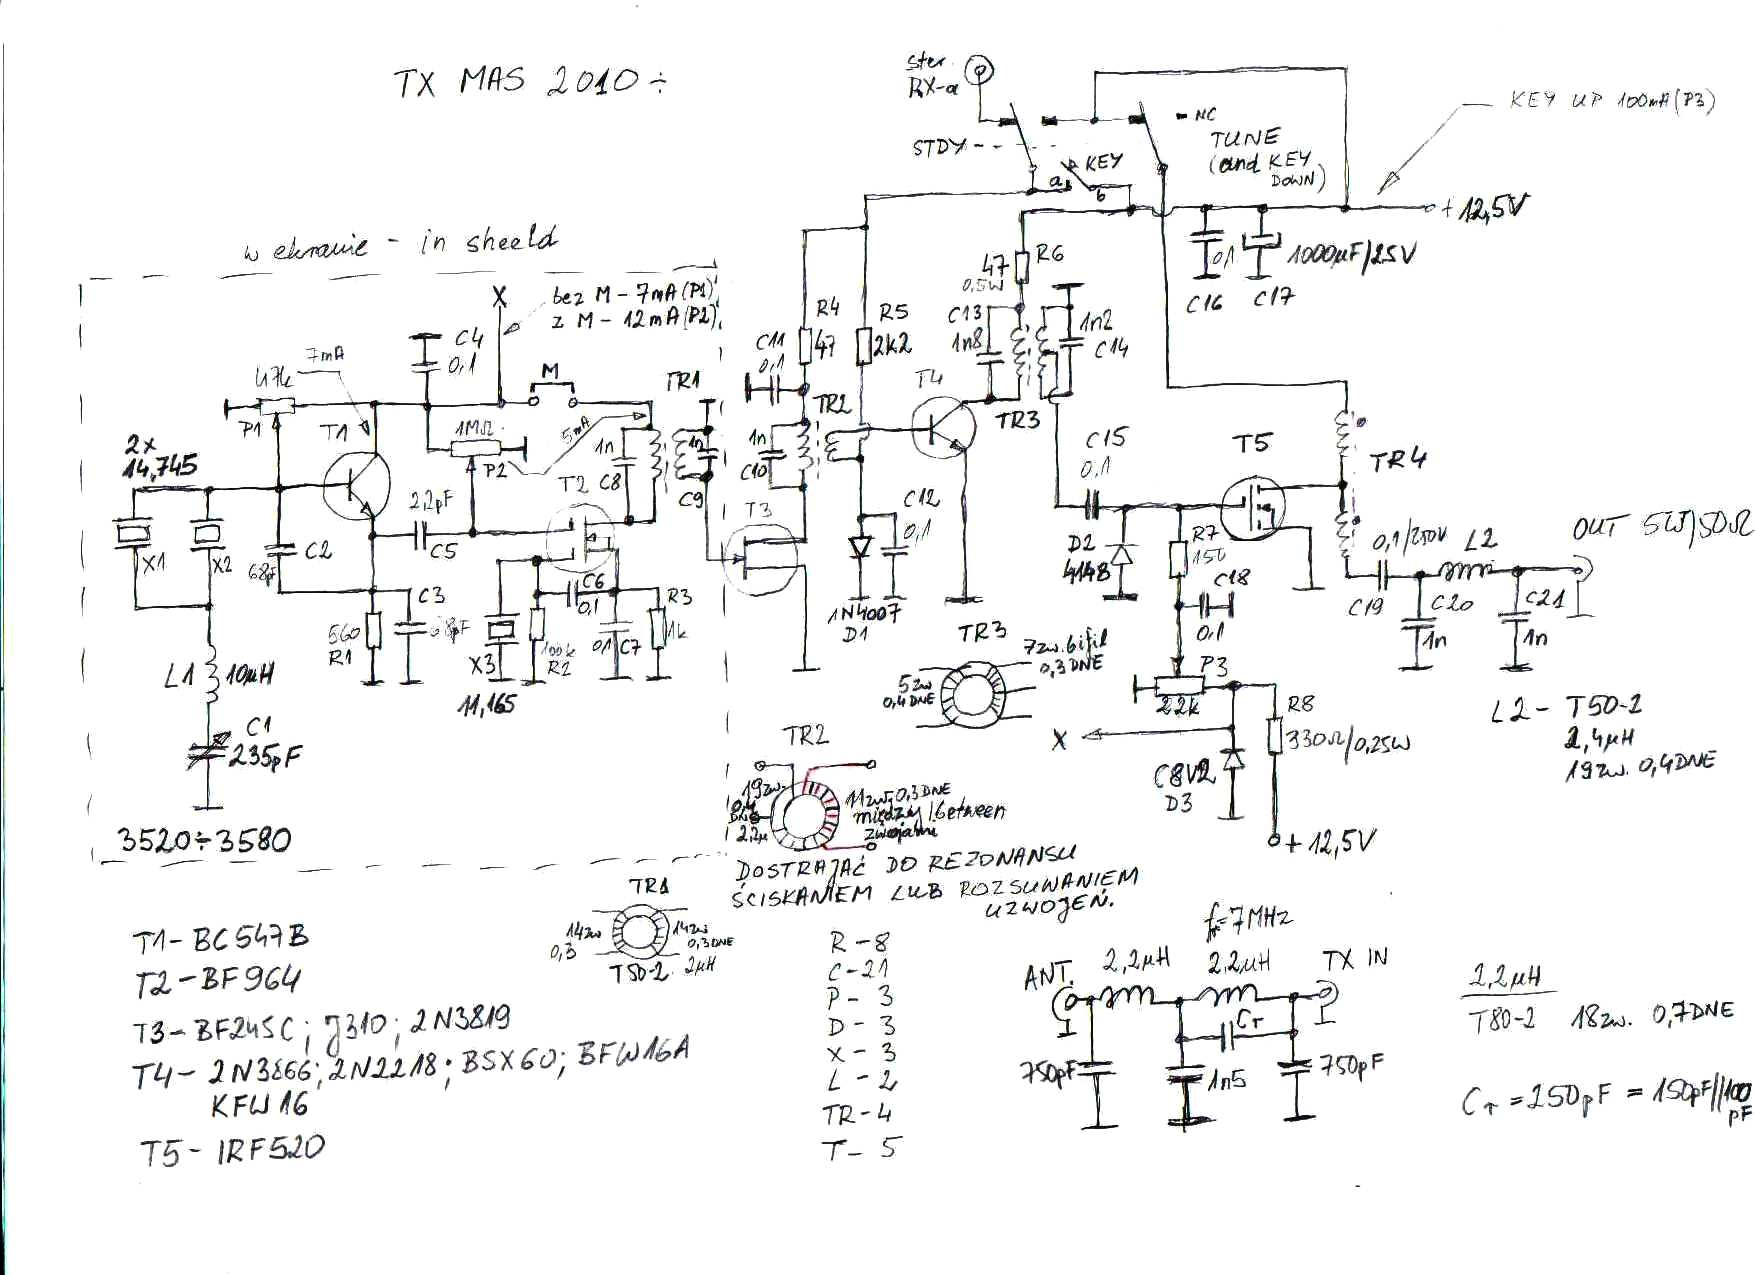 TX MAS 2010÷
ster.
RX-a
STBY
KEY
a
b
NC
TUNE
(and KEY
DOWN)
KEY UP 100mA (P3)
+ 12,5V
w ekranie - in sheeld
X
bez M - 7mA (P1)
z M - 12mA (P2)
C4
0,1
7mA
47k
P1
T1
M
TR1
1MΩ
P2
5mA
1n
C8
1n
C9
2x
14,745
X1
X2
C2
68pF
2,2pF
C5
T2
C3
68pF
560
R1
C6
0,1
R3
1k
X3
11,165
100k
R2
0,1
C7
L1
10µH
C1
235pF
3520÷3580
R4
47
R5
2k2
C11
0,1
TR2
1n
C10
T3
C12
0,1
1N4007
D1
T4
47
0,5W
R6
C13
1n8
1n2
C14
TR3
0,1
C16
1000µF/25V
C17
C15
0,1
T5
D2
4148
R7
150
C18
0,1
P3
22k
X
C8V2
D3
R8
330Ω/0,25W
+ 12,5V
TR4
0,1/250V
C19
L2
OUT 5W/50Ω
C20
1n
C21
1n
L2 - T50-2
2,4µH
19zw. 0,4DNE
TR3
7zw. bifil
0,3DNE
5zw
0,4DNE
TR2
19zw.
0,4
DNE
2,2µ
11zw. 0,3DNE
między/between
zwojami
DOSTRAJAĆ DO REZONANSU
ŚCISKANIEM LUB ROZSUWANIEM
UZWOJEŃ.
TR1
14zw
0,3
14zw
0,3DNE
T50-2
2µH
T1 - BC547B
T2 - BF964
T3 - BF245C; J310; 2N3819
T4 - 2N3866; 2N2218; BSX60; BFW16A
KFW16
T5 - IRF520
R - 8
C - 21
P - 3
D - 3
X - 3
L - 2
TR - 4
T - 5
f=7MHz
ANT.
2,2µH
2,2µH
TX IN
Cr
750pF
1n5
750pF
2,2µH
T80-2
18zw. 0,7DNE
Cr = 250pF = 150pF//100
pF